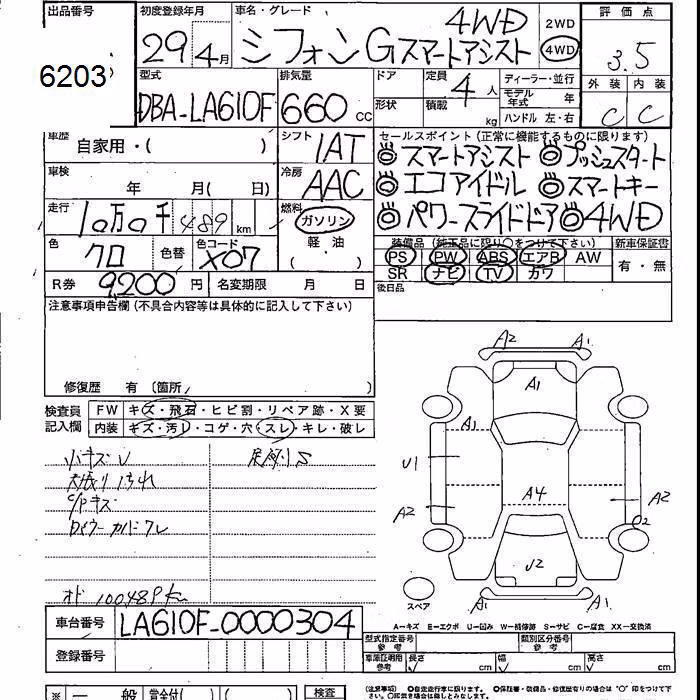 出品番号
6203
初度登録年月
29年4月
車名・グレード
シフォン Gスマートアシスト 4WD
2WD
4WD
評価点
3.5
外装 内装
C C
型式
DBA-LA610F
排気量
660cc
ドア
形状
定員 4人
積載 kg
ディーラー・並行
モデル年式 年
ハンドル 左・右
車歴
自家用・( )
シフト
IAT
車検
年 月( 日)
冷房
AAC
セールスポイント(正常に機能するものに限ります)
◎スマートアシスト ◎プッシュスタート
◎エコアイドル ◎スマートキー
◎パワースライドドア ◎4WD
走行
10万0千489km
燃料
ガソリン
軽油
( )
色
クロ
色替
色コード
X07
装備品(純正品に限り○をつけて下さい)
PS PW ABS エアB AW
SR ナビ TV カワ
新車保証書
有・無
R券
9200円
名変期限 月 日
後日品
注意事項申告欄(不具合内容等は具体的に記入して下さい)
修復歴 有(箇所 )
検査員記入欄
FW キズ・飛石・ヒビ割・リペア跡・X要
内装 キズ・汚レ・コゲ・穴・スレ・キレ・破レ
小キズU
天張り汚れ
C/Pキズ
オド 100489km
A2 A1
A1
A1
U1
A2
A4
A2
U2
A1 A1
スペア
A-キズ E-エクボ U-凹み W-補修跡 S-サビ C-腐食 XX-交換済
車台番号
LA610F-0000304
登録番号
型式指定番号 参考
類別区分番号 参考
車庫証明用参考
長さ cm 幅 cm 高さ cm
※ 一般 賞金付( ) ( ) 検査
(注意事項) ●自走走行車に限ります。 ●保証書・整備記録簿